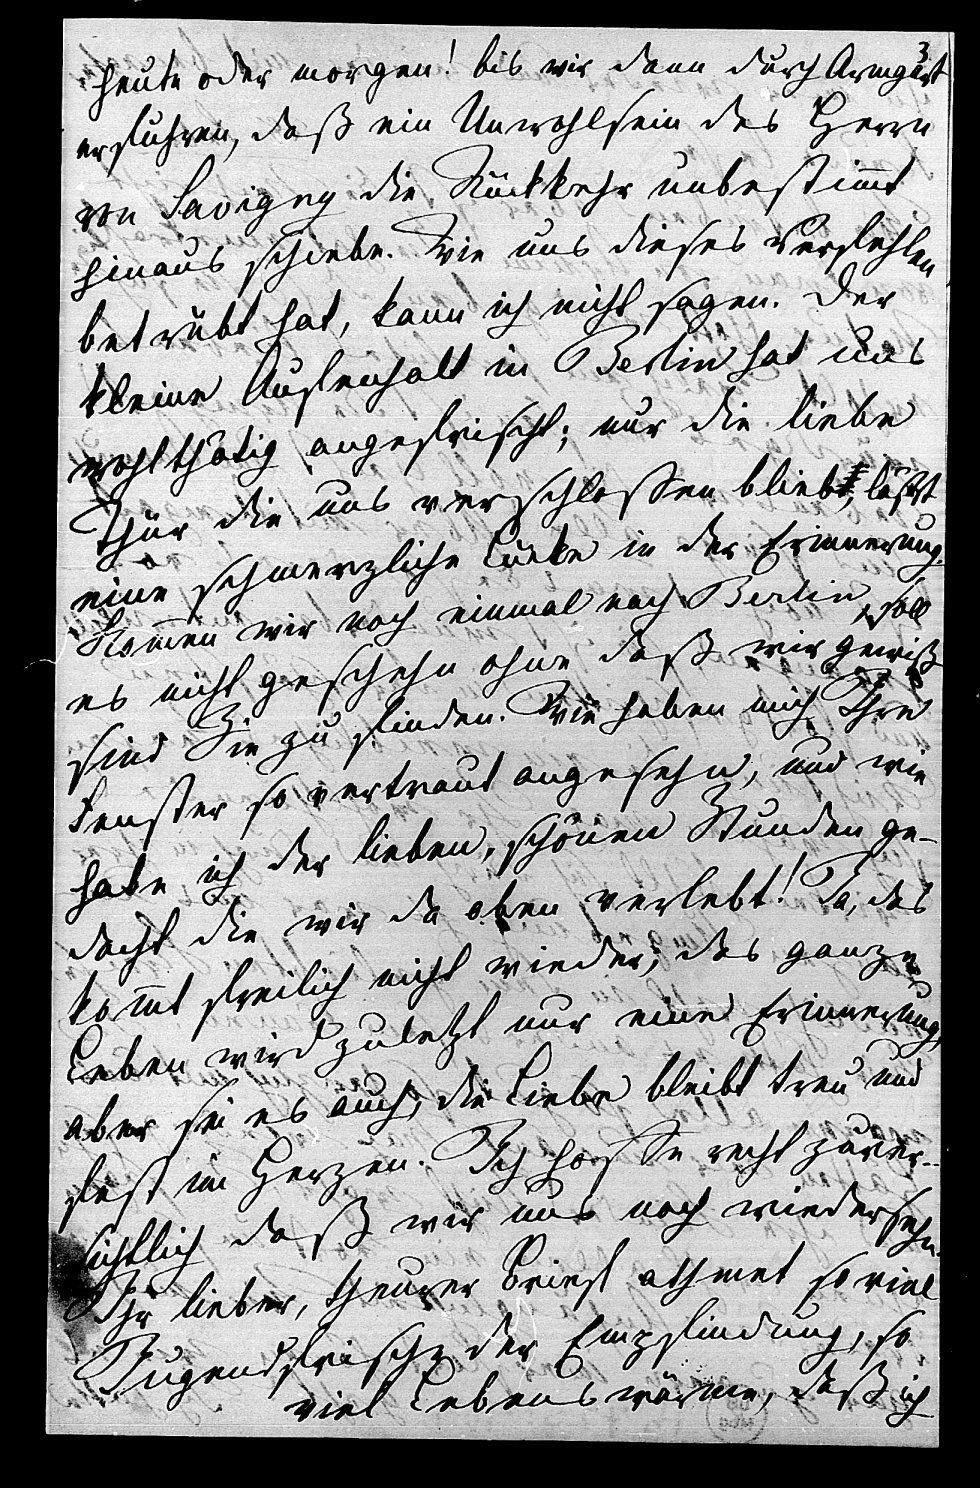 3
heute oder morgen! bis wir denn durch Armgart
erfuhren, daß ein Unwohlsein des Herrn
von Savigny die Rückkehr unbestimmt
hinaus schiebe. Wie uns dieses Verfehlen
betrübt hat, kann ich nicht sagen. Der
kleine Aufenhalt in Berlin hat uns
wohlthätig angefrischt; nur die liebe
Thür die uns verschloßen blieb, läßt
eine schmerzliche Lücke in der Erinnerung.
Kommen wir noch einmal nach Berlin, soll
es nicht geschehn ohne daß wir gewiß
sind Sie zu finden. Wie haben mich Ihre
Fenster so vertraut angesehn, und wie
habe ich der lieben, schönen Stunden ge-
dacht die wir da oben verlebt! Ja, das
kommt freilich nicht wieder; das ganze
Leben wird zuletzt nur eine Erinnerung,
aber sei es auch, die Liebe bleibt treu und
fest im Herzen. Ich hoffe recht zuver-
sichtlich daß wir uns noch wiedersehn.
Ihr lieber, theurer Brief athmet so viel
Jugendfrische der Empfindung, so
viel Lebenswärme, daß ich